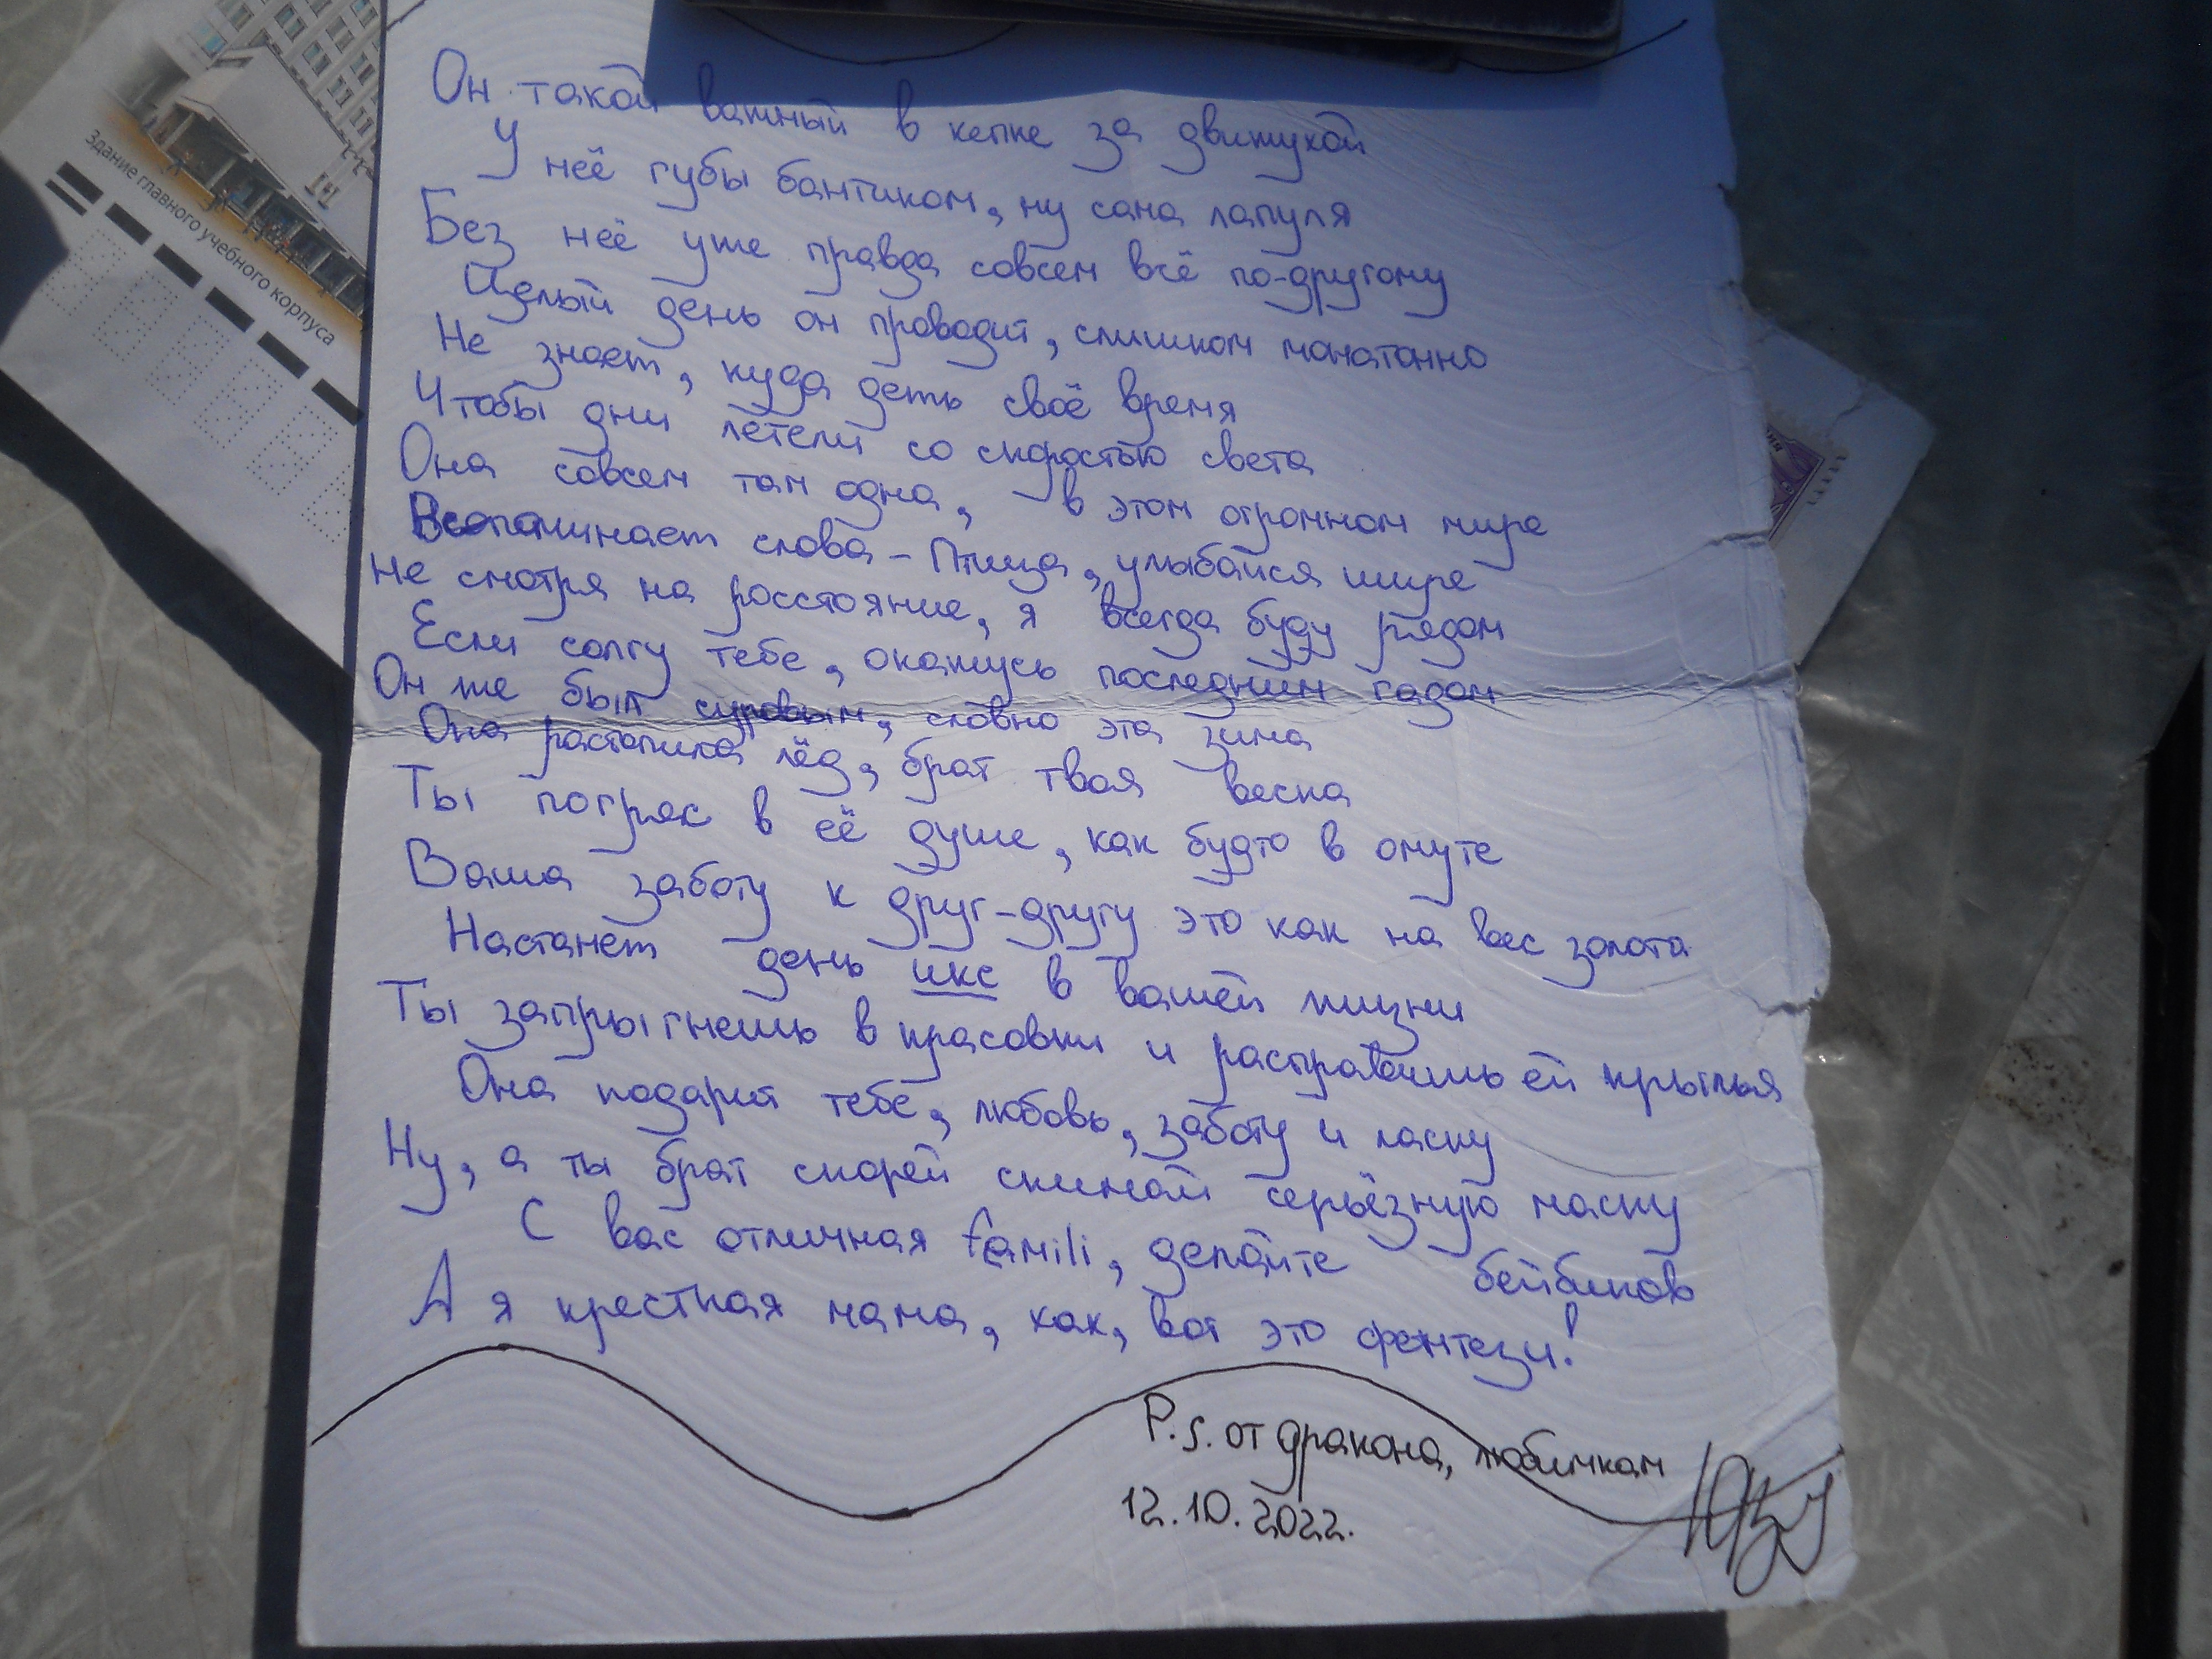 Здание главного учебного корпуса
Он такой важный в кепке за движухой
У неё губы бантиком, ну сама лапуля
Без неё уже правда совсем всё по-другому
Целый день он проводит, слишком монатонно
Не знает, куда деть своё время
Чтобы дни летели со скоростью света
Она совсем там одна, в этом огромном мире
Вспоминает слова - Птица, улыбайся шире
Не смотря на расстояние, я всегда буду рядом
Если солгу тебе, окажусь последним гадом
Он же был суровым, словно эта зима
Она растопила лёд, брат твоя весна
Ты погряс в её душе, как будто в омуте
Ваша заботу к друг-другу это как на вес золота
Настанет день икс в вашей жизни
Ты запрыгнешь в красовки и расправишь ей крылья
Она подарит тебе, любовь, заботу и ласку
Ну, а ты брат скорей скимай серьёзную маску
С вас отличная famili, делайте бейбиков
А я крестная мама, как, вот это фентези!
P.s. от дракона, любимкам
12.10.2022.